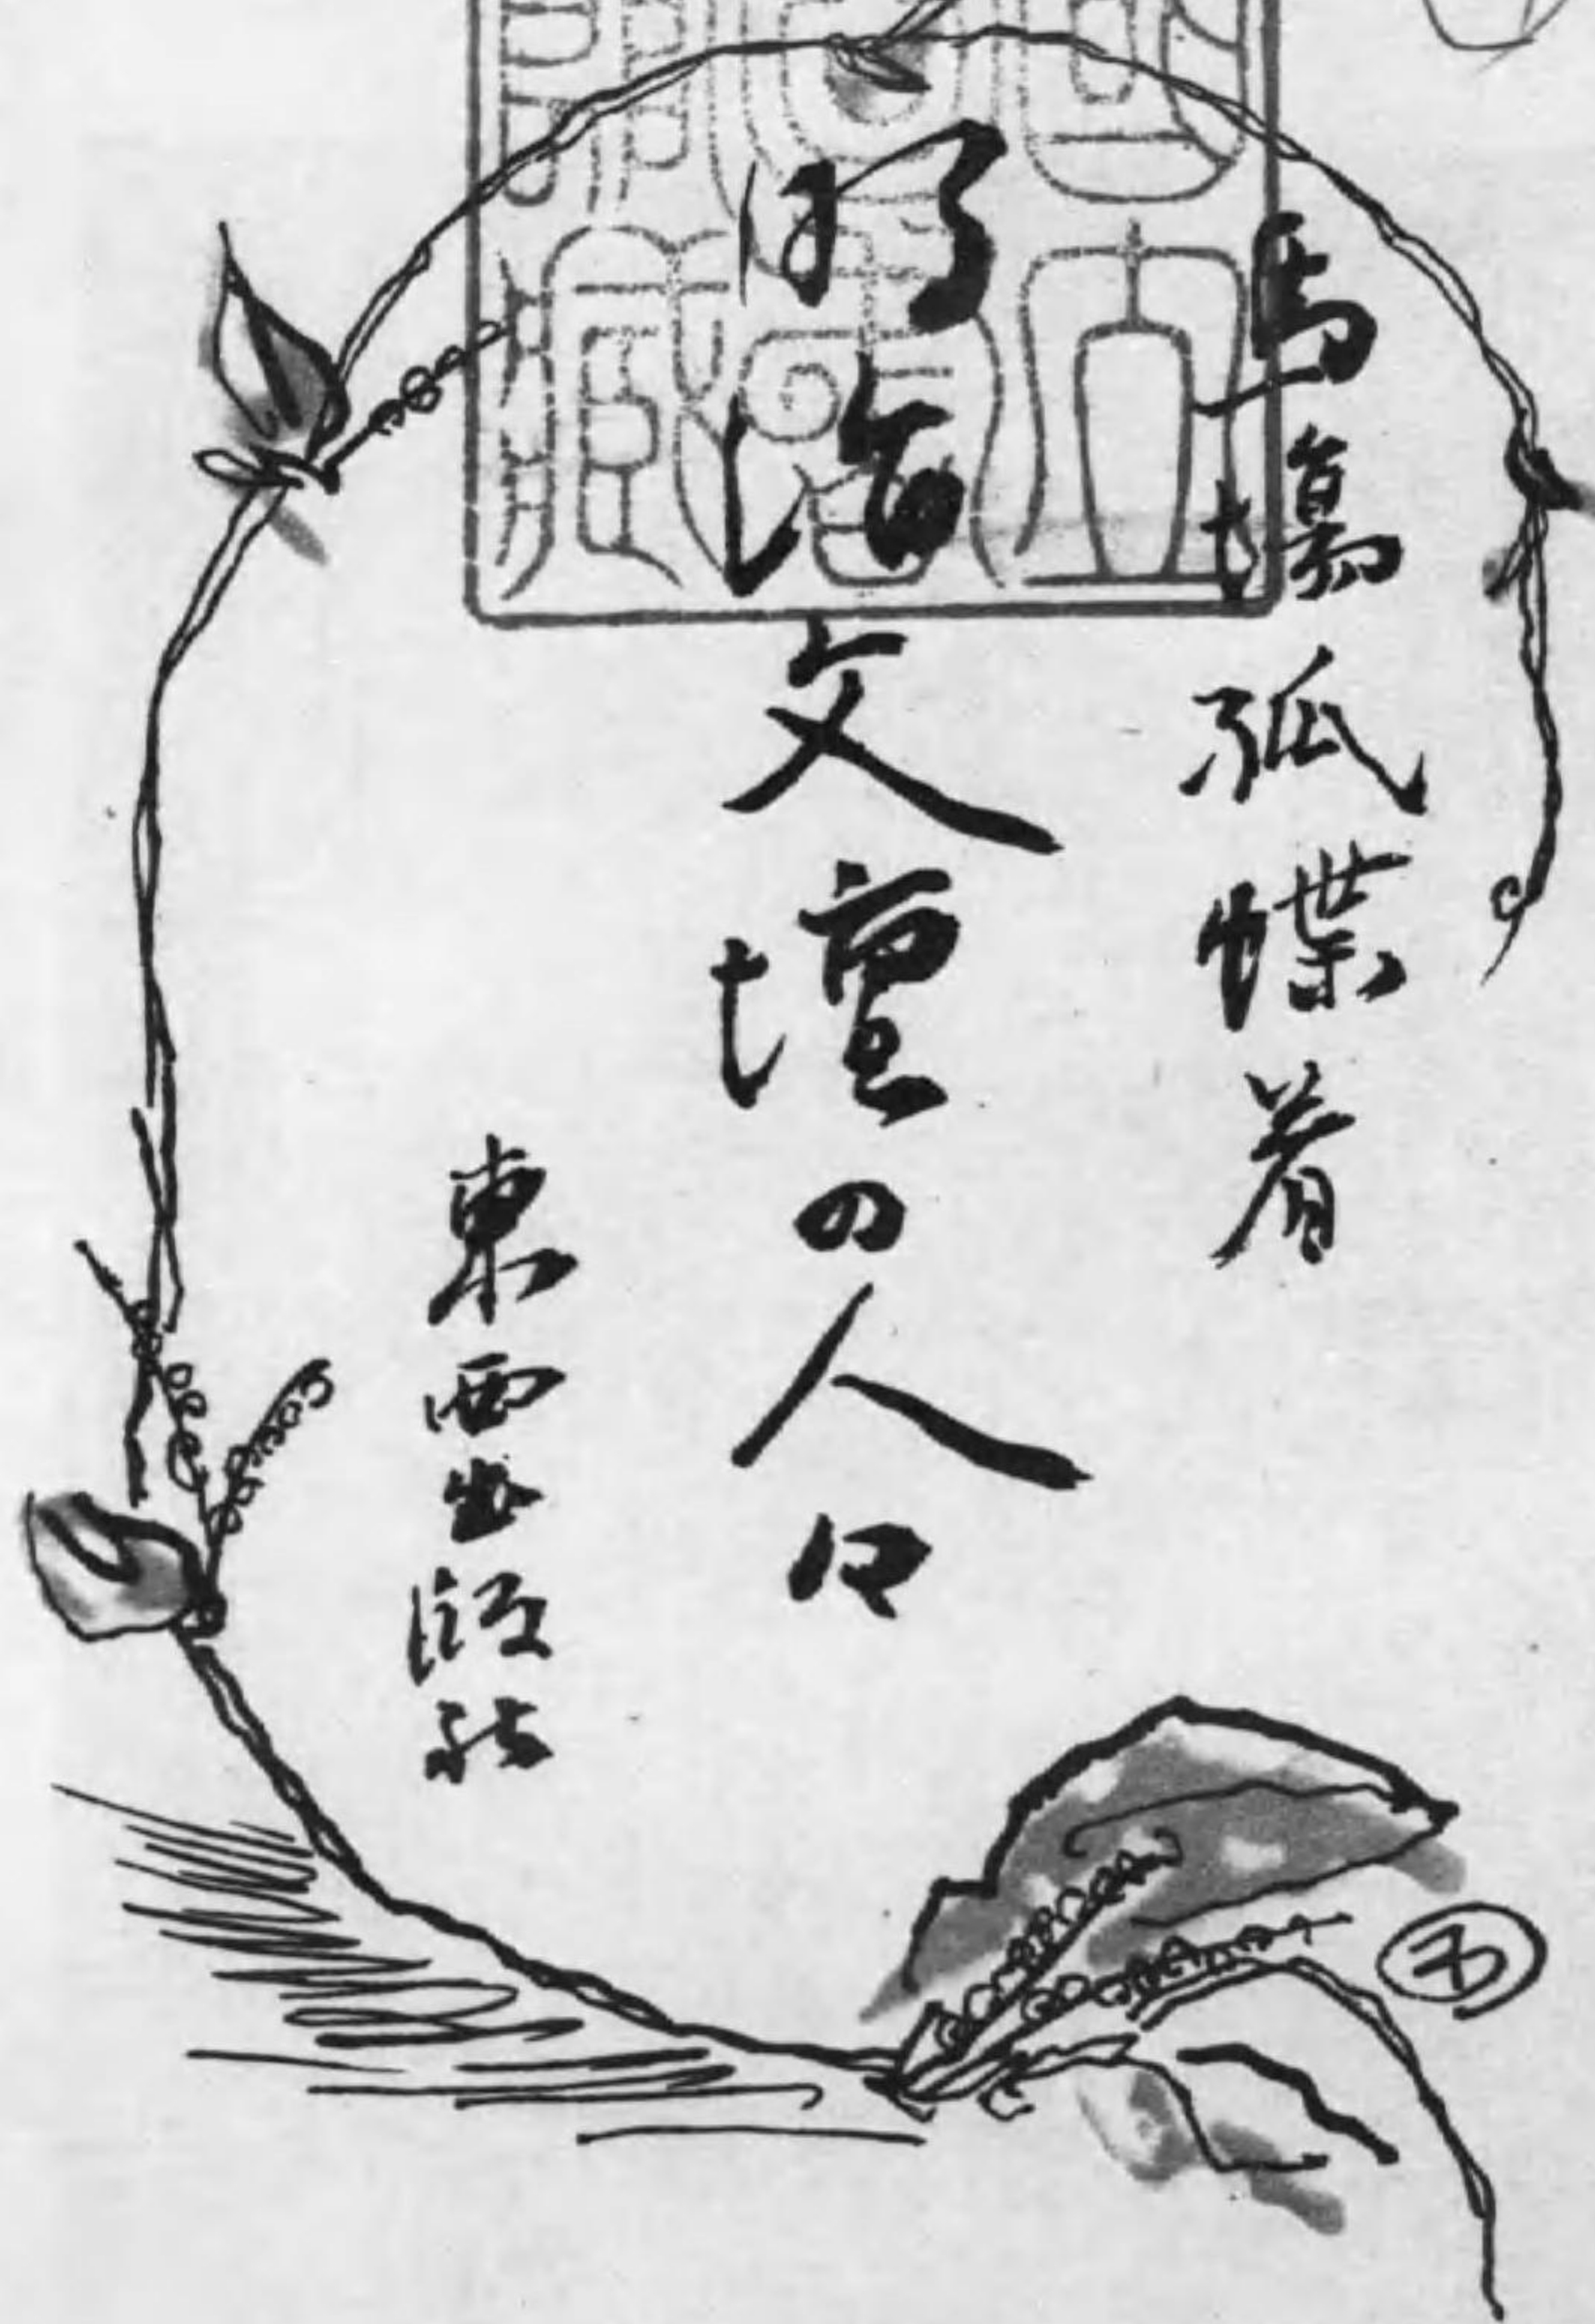 馬場孤蝶著
明治文壇の人々
東西出版社